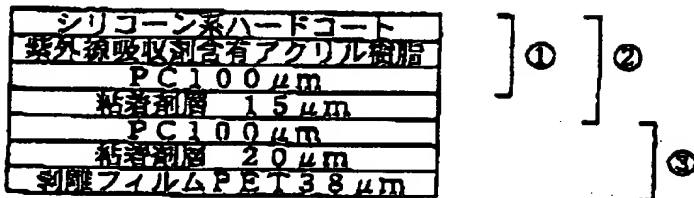 シリコーン系ハードコート
紫外線吸収剤含有アクリル樹脂
PC100μm
粘着剤層 15μm
PC100μm
粘着剤層 20μm
剥離フィルムPET38μm
①
②
③